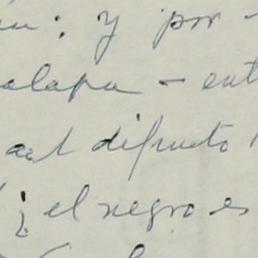 : y por -
alapa - ent
del difunto
¿el negro es